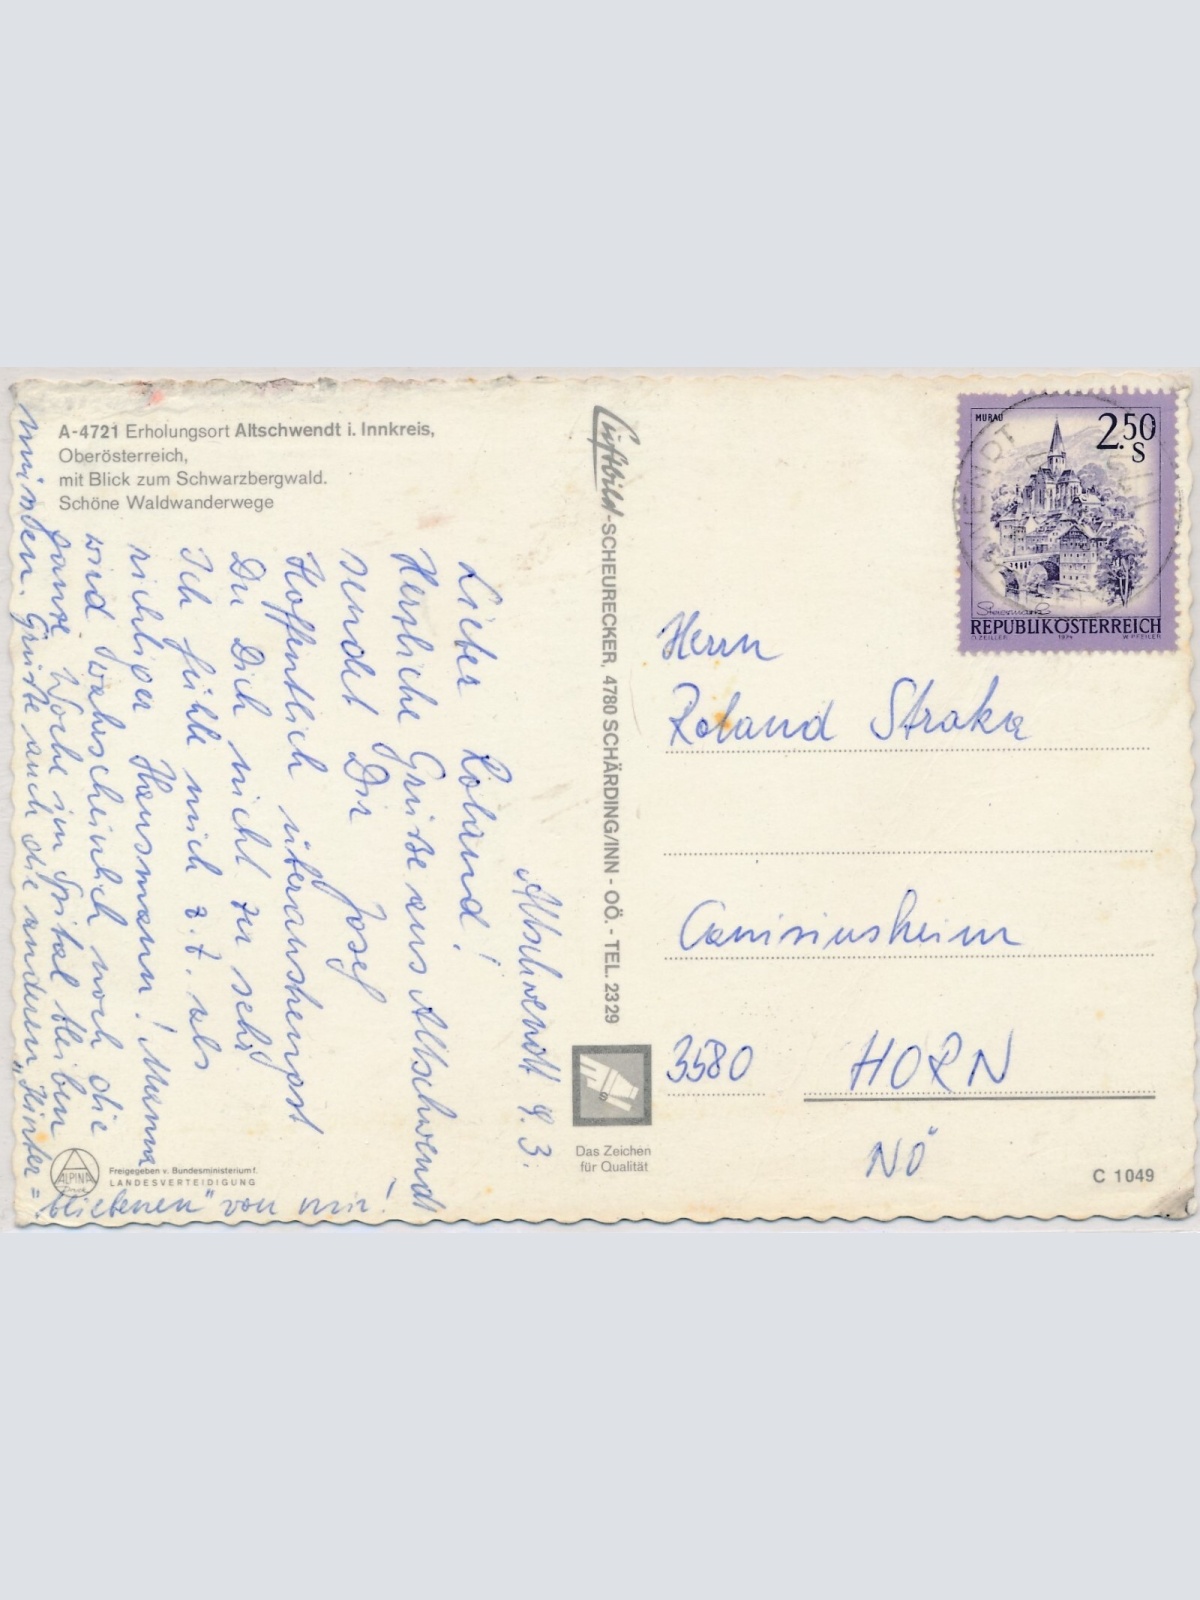 A-4721 Erholungsort Altschwendt i. Innkreis,
Oberösterreich,
mit Blick zum Schwarzbergwald.
Schöne Waldwanderwege
Altschwendt 4.3.
Lieber Roland!
Herzliche Grüße aus Altschwendt
sendet Dir Josef
Hoffentlich überanstrengst
Du Dich nicht zu sehr
Ich fühle mich z.Z. als
richtiger Hausmann! Mama
wird wahrscheinlich noch die
ganze Woche im Spital bleiben
müssen. Grüße auch die anderen „Hinter=
bliebenen" von mir!
ALPINA
Freigegeben v. Bundesministerium f.
LANDESVERTEIDIGUNG
Luftbild-SCHEURECKER, 4780 SCHÄRDING/INN - OÖ. - TEL. 23 29
Das Zeichen
für Qualität
MURAU
2.50
S
Steiermark
REPUBLIK ÖSTERREICH
O. ZEILLER 1974 W. PFEILER
Herrn
Roland Straka
Canisiusheim
3580 HORN
NÖ
C 1049